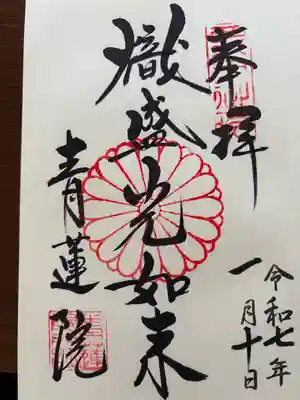 奉拝
熾盛光如来
青蓮院
令和七年
一月十日